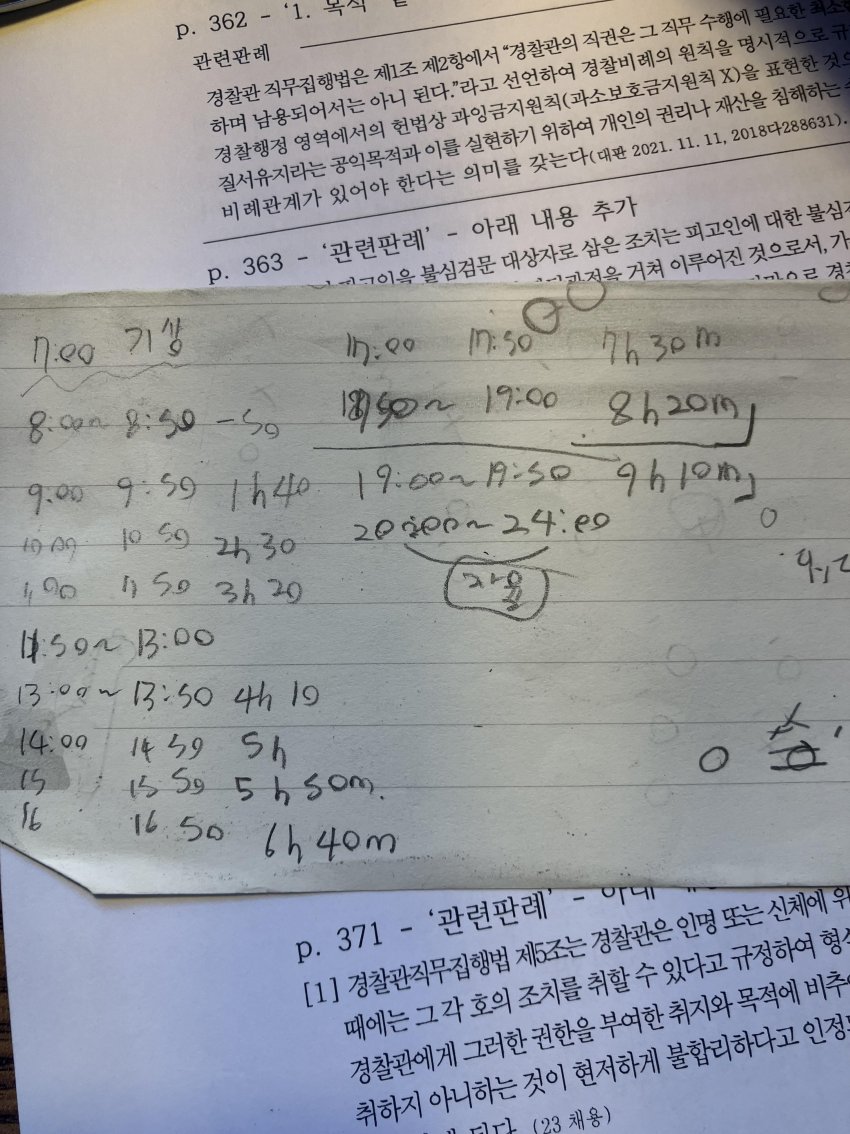 p. 362 - '1. 목적 및
관련판례
경찰관 직무집행법은 제1조 제2항에서 “경찰관의 직권은 그 직무 수행에 필요한 최소한
하며 남용되어서는 아니 된다.”라고 선언하여 경찰비례의 원칙을 명시적으로 규
경찰행정 영역에서의 헌법상 과잉금지원칙(과소보호금지원칙 X)을 표현한 것으
질서유지라는 공익목적과 이를 실현하기 위하여 개인의 권리나 재산을 침해하는
비례관계가 있어야 한다는 의미를 갖는다(대판 2021. 11. 11, 2018다288631).
p. 363 - '관련판례' - 아래 내용 추가
피고인을 불심검문 대상자로 삼은 조치는 피고인에 대한 불심
거쳐 이루어진 것으로서, 가
7:00 기상
8:00~ 8:50 -50
9:00 9:50 1h40
10 00 10 50 2h 30
11 00 11 50 3h 20
11:50~ 13:00
13:00~ 13:50 4h 10
14:00 14 50 5h
15 15 50 5h 50m.
16 16 50 6h 40m
17:00 17:50 7h 30m
~ 19:00 8h20m
19:00~19:50 9h 10m
20:00~ 24:00
자율
p. 371 - '관련판례' - 아래
[1] 경찰관직무집행법 제5조는 경찰관은 인명 또는 신체에 위
때에는 그 각 호의 조치를 취할 수 있다고 규정하여 형식
경찰관에게 그러한 권한을 부여한 취지와 목적에 비추어
취하지 아니하는 것이 현저하게 불합리하다고 인정되
된다. (23 채용)